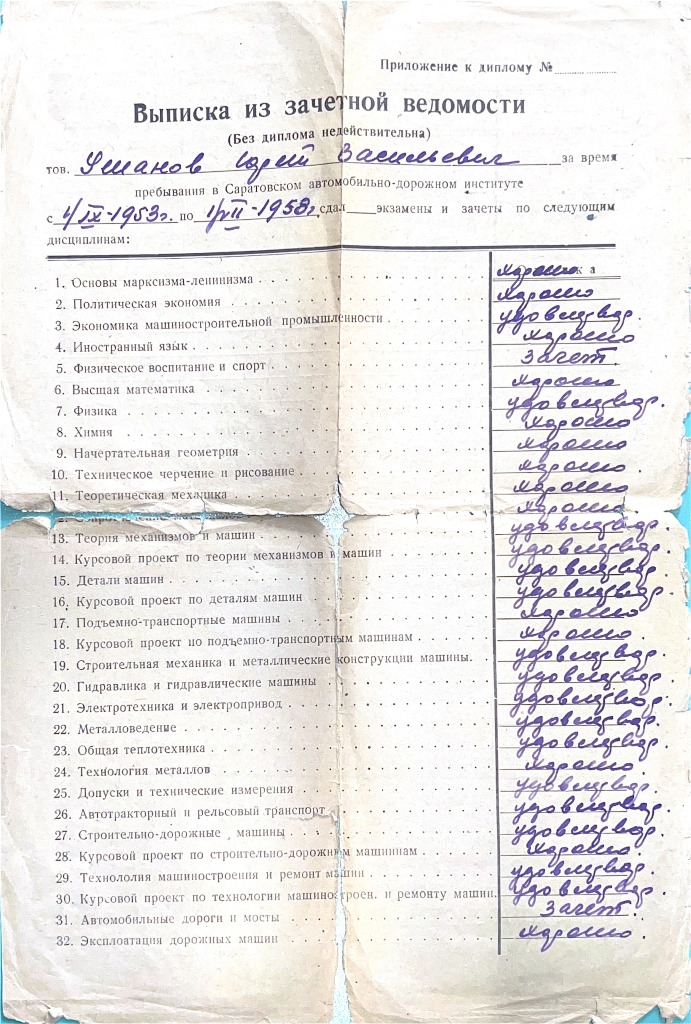 Приложение к диплому №
Выписка из зачетной ведомости
(Без диплома недействительна)
тов. Ушанов Юрий Васильевич за время
пребывания в Саратовском автомобильно-дорожном институте
с 1/IX-1953г. по 1/VII-1958г. сдал экзамены и зачеты по следующим
дисциплинам:
1. Основы марксизма-ленинизма хорошо
2. Политическая экономия хорошо
3. Экономика машиностроительной промышленности удовлетвор.
4. Иностранный язык хорошо
5. Физическое воспитание и спорт зачет.
6. Высшая математика хорошо
7. Физика удовлетвор.
8. Химия хорошо
9. Начертательная геометрия хорошо
10. Техническое черчение и рисование хорошо.
11. Теоретическая механика хорошо
хорошо
13. Теория механизмов и машин удовлетвор.
14. Курсовой проект по теории механизмов и машин удовлетвор.
15. Детали машин удовлетвор.
16. Курсовой проект по деталям машин удовлетвор.
17. Подъемно-транспортные машины хорошо
18. Курсовой проект по подъемно-транспортным машинам хорошо
19. Строительная механика и металлические конструкции машины. удовлетвор.
20. Гидравлика и гидравлические машины удовлетвор.
21. Электротехника и электропривод удовлетвор.
22. Металловедение удовлетвор.
23. Общая теплотехника удовлетвор.
24. Технология металлов хорошо.
25. Допуски и технические измерения удовлетвор.
26. Автотракторный и рельсовый транспорт удовлетвор.
27. Строительно-дорожные машины удовлетвор.
28. Курсовой проект по строительно-дорожным машиннам хорошо.
29. Технололия машиностроения и ремонт машин удовлетвор.
30. Курсовой проект по технологии машиностроен. и ремонту машин. удовлетвор.
31. Автомобильные дороги и мосты зачет.
32. Эксплоатация дорожных машин хорошо.